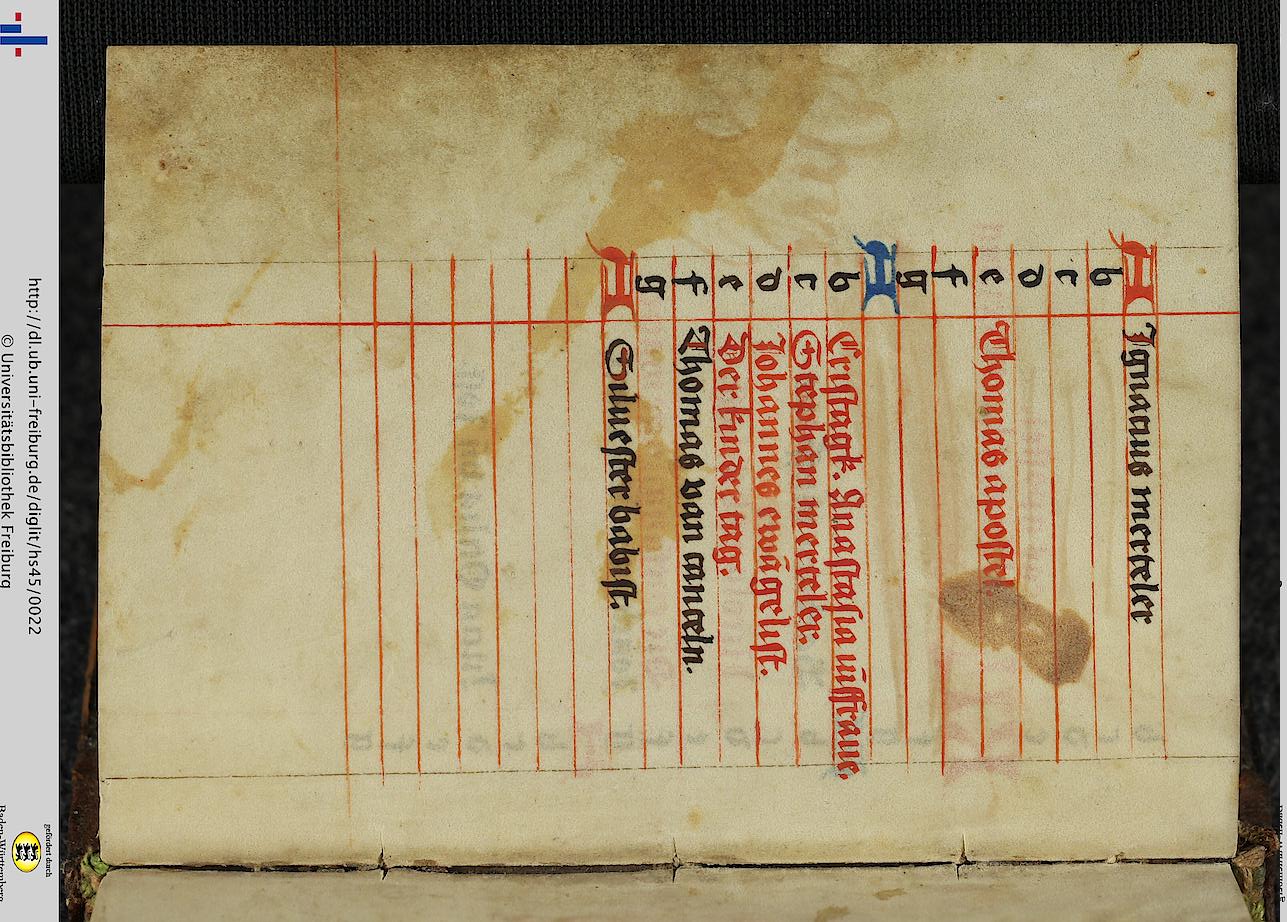 A Ignacius merteler
b
c
d
e Thomas apostel.
f
g
A
b Cristagk. Anastasia iūffraue.
c Stephan merteler.
d Johannes ewāgelist.
e Der kinder tag.
f Thomas van canteln.
g
A Siluester babist.
http://dl.ub.uni-freiburg.de/diglit/hs45/0022
© Universitätsbibliothek Freiburg
gefördert durch
Baden-Württemberg